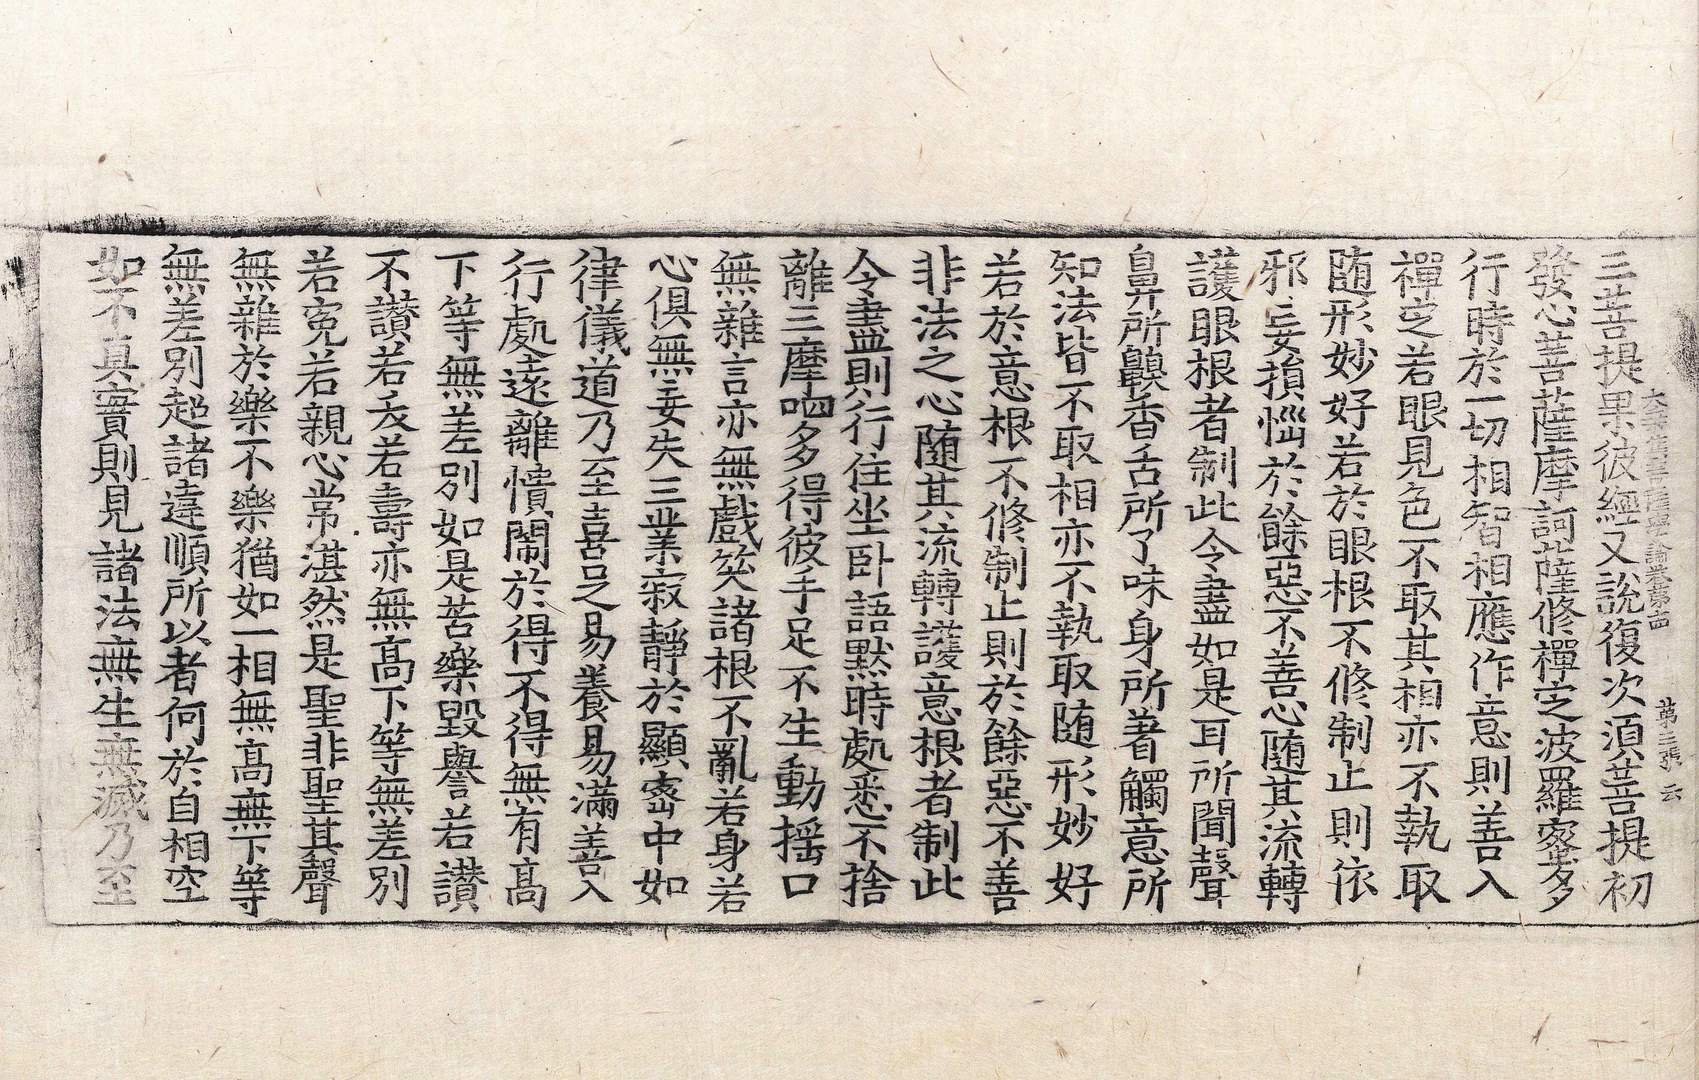 三菩提果彼經又說復次須菩提初
大乘集菩薩學論卷第四　第三張　云
發心菩薩摩訶薩修禪定波羅蜜多
行時於一切相智相應作意則善入
禪定若眼見色不取其相亦不執取
随形妙好若於眼根不修制止則依
邪妄損惱於餘惡不善心随其流轉
護眼根者制此令盡如是耳所聞聲
鼻所齅香舌所了味身所著觸意所
知法皆不取相亦不執取随形妙好
若於意根不修制止則於餘惡不善
非法之心随其流轉護意根者制此
令盡則行住坐卧語默時處悉不捨
離三摩呬多得彼手足不生動摇口
無雜言亦無戲笑諸根不亂若身若
心俱無妄失三業寂靜於顯密中如
律儀道乃至喜足易養易滿善入
行處遠離憒鬧於得不得無有高
下等無差別如是苦樂毀譽若讃
不讃若夭若壽亦無高下等無差別
若寃若親心常湛然是聖非聖其聲
無雜於樂不樂猶如一相無高無下等
無差別起諸違順所以者何於自相空
如不真實則見諸法無生無滅乃至